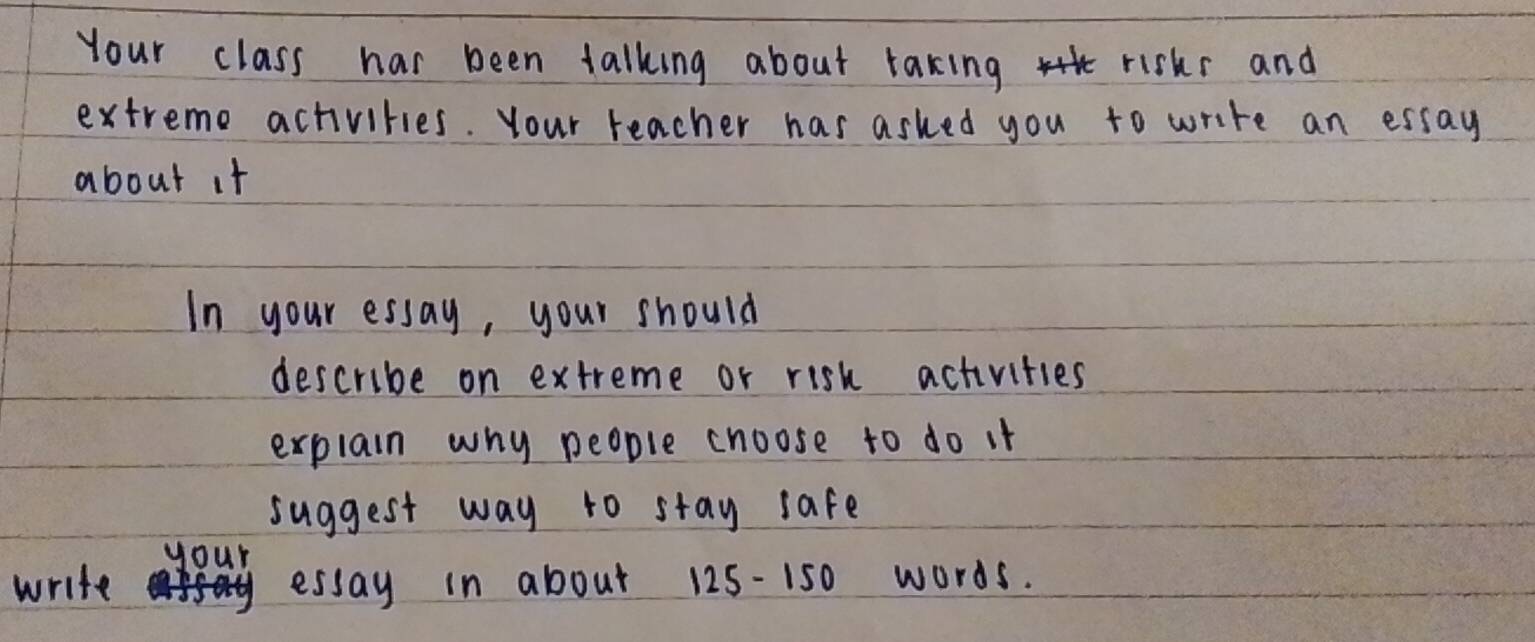 Your class has been talking about taking risks and
extreme activities. Your teacher has asked you to write an essay
about it
In your essay, your should
describe on extreme or risk activities
explain why people choose to do it
suggest way to stay safe
your
write essay in about 125-150 words.